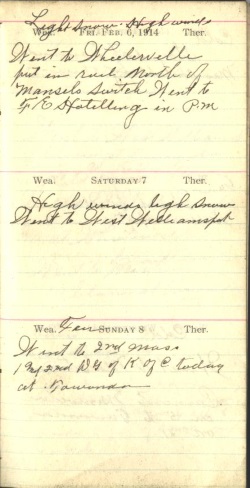 Light snow. High winds
Wea. FRI. FEB. 6, 1914 Ther.
Went to Wheelerville
put in rail. North of
Mansels Switch Went to
F E Hotelling in P.M
Wea. SATURDAY 7 Ther.
High winds ligh snow
Went to West Williamspt
Wea. Fair SUNDAY 8 Ther.
Went to 2nd Mass
1 & 2nd D G of K of C today
at Towanda